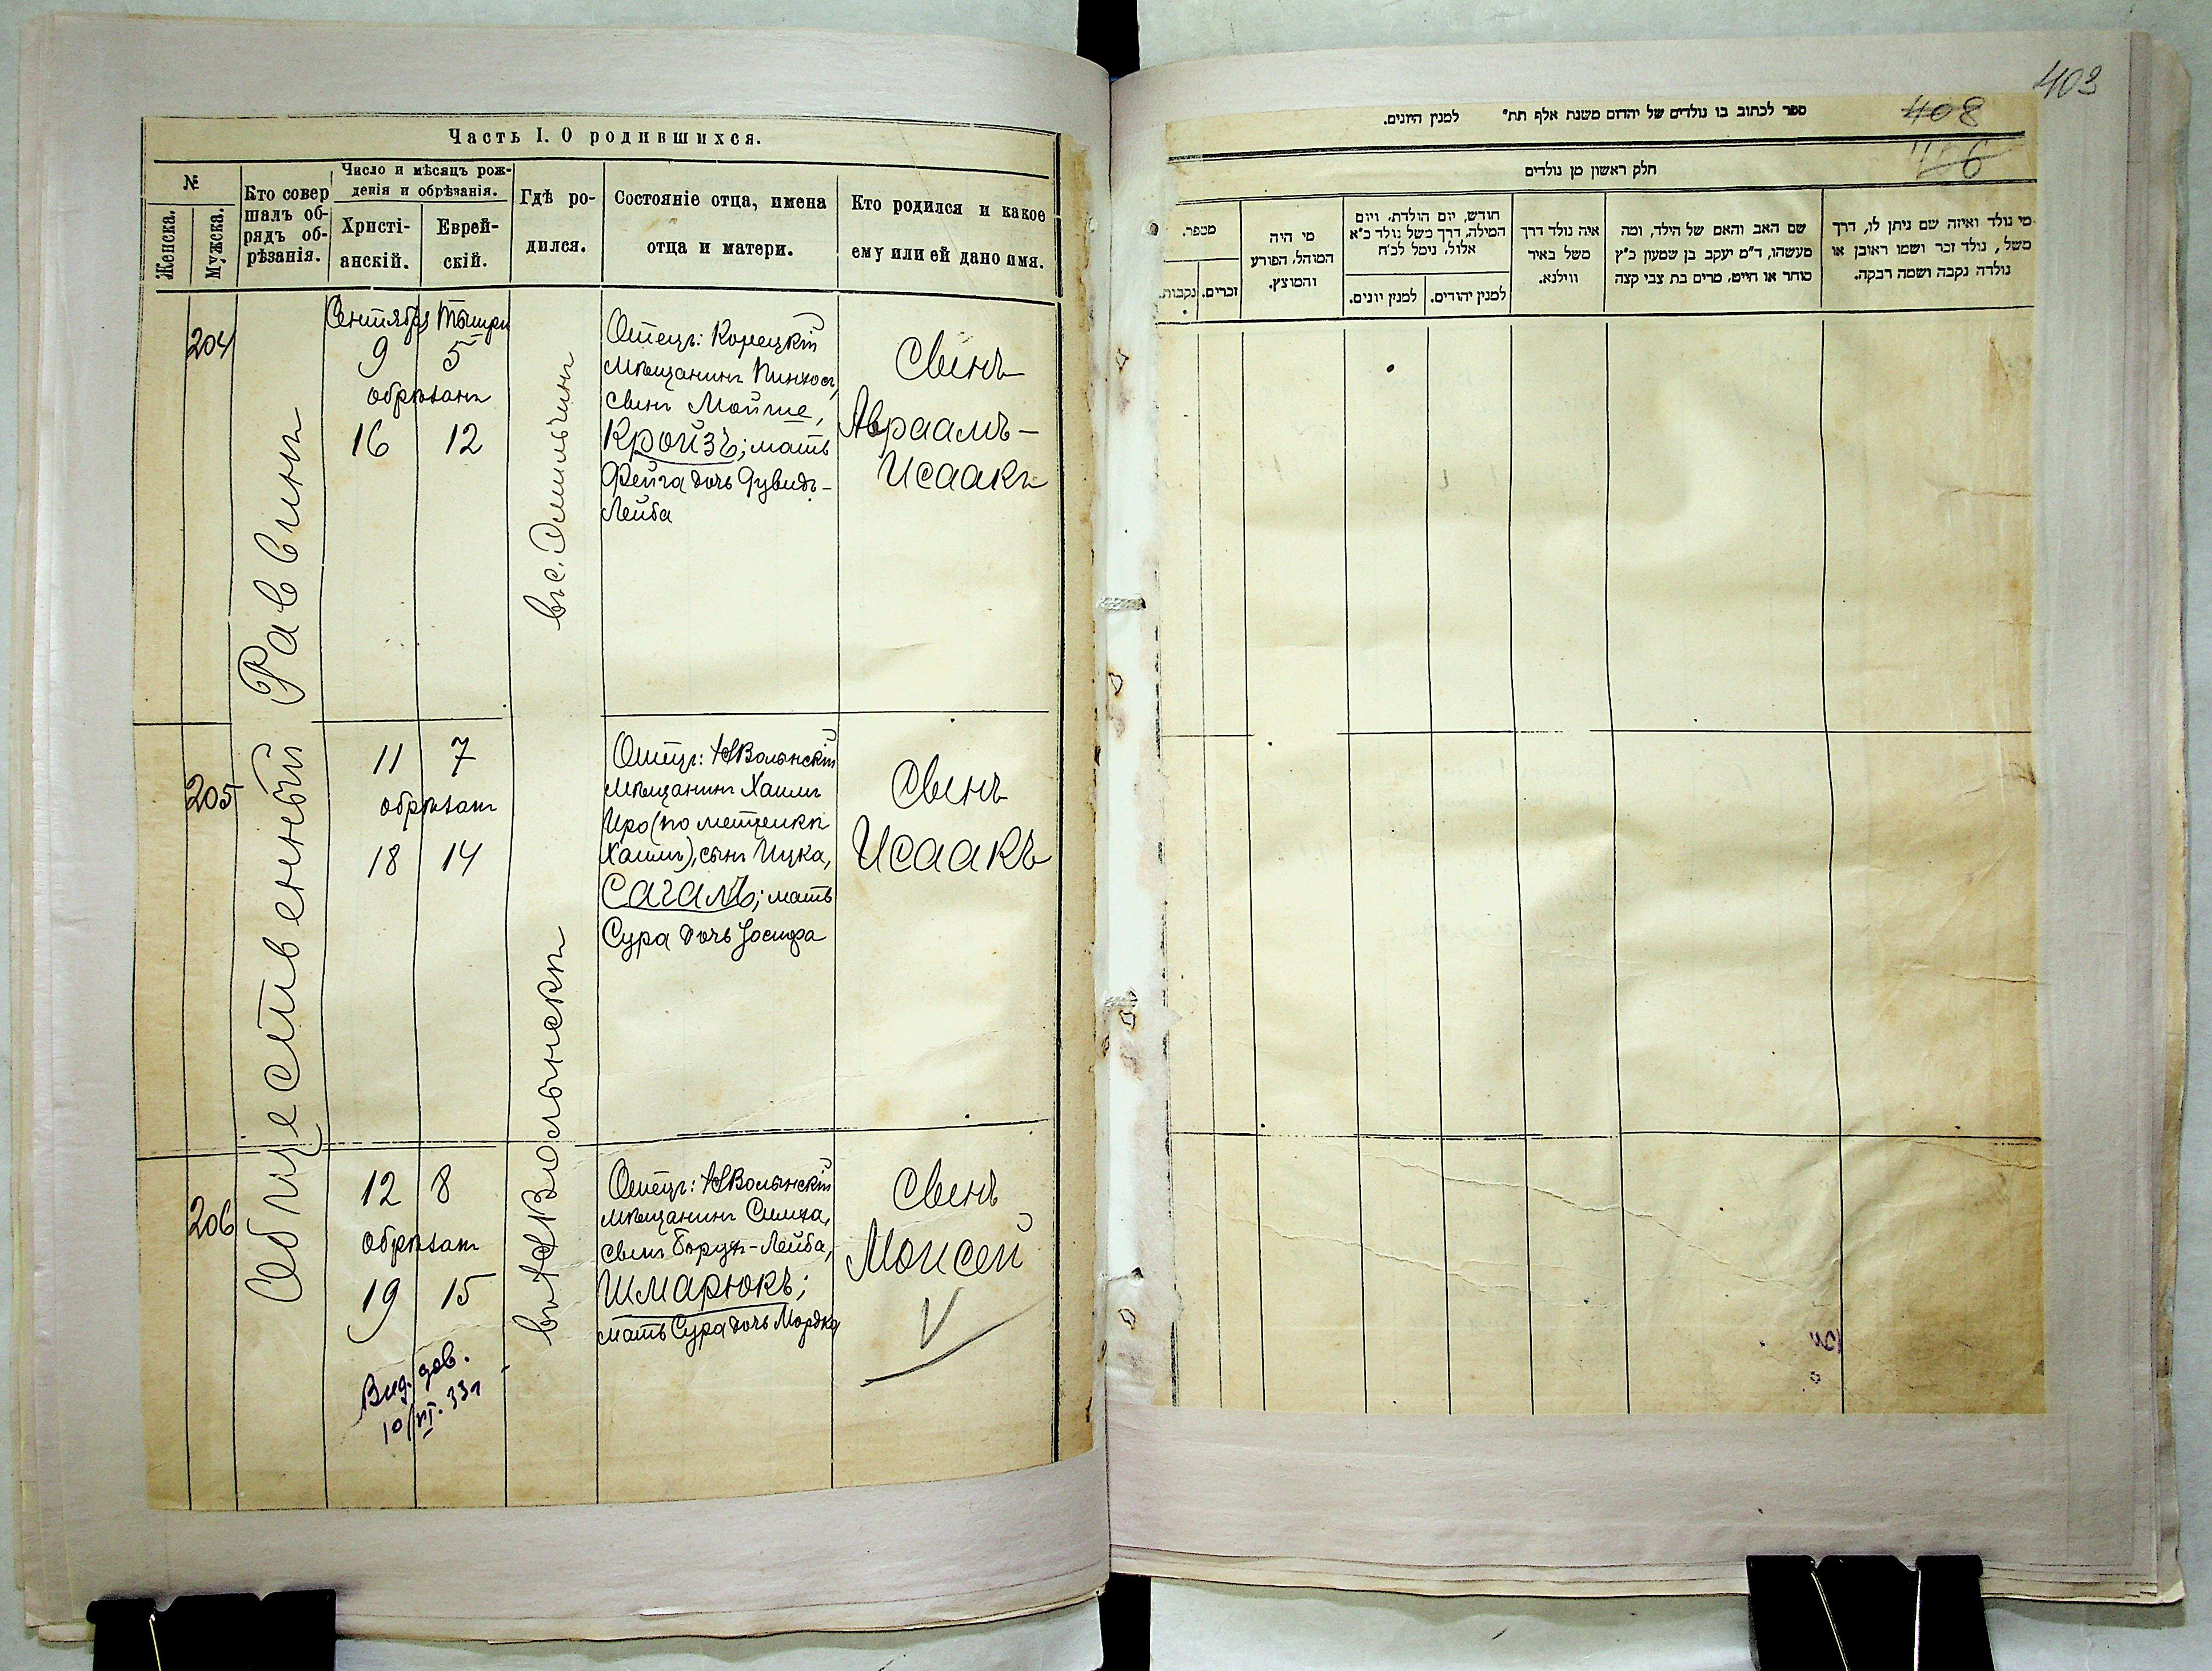 Часть I. О родившихся.
№
Женска.
Мужска.
Кто совер
шалъ об-
рядъ об-
рѣзанія.
Число и мѣсяцъ рож-
денія и обрѣзанія.
Христі-
анскій.
Еврей-
скій.
Гдѣ ро-
дился.
Состояніе отца, имена
отца и матери.
Кто родился и какое
ему или ей дано имя.
Общественный Раввинъ
204
Сентября Тышри
9 5
обрѣзанъ
16 12
въ с.
Отецъ: Корецкій
мѣщанинъ Пинхосъ,
сынъ Мойше,
Кройзъ; мать
Фейга дочь Дувидъ-
Лейба
Сынъ
Авраамъ-
Исаакъ
205
11 7
обрѣзанъ
18 14
въ НВолынскѣ
Отецъ: НВолынскій
мѣщанинъ Хаимъ
Иро (по метрикѣ
Хаимъ), сынъ Ицка,
Сагалъ; мать
Сура дочь Іосифа
Сынъ
Исаакъ
206
12 8
обрѣзанъ
19 15
Вид. дов.
10/VI. 33 г
Отецъ: НВолынскій
мѣщанинъ Симха,
сынъ Борух-Лейба,
Шмарюкъ;
мать Сура дочь Мордка
Сынъ
Моисей
V
403
408
ספר לכתוב בו נולדים של יהדום משנת אלף תת" למנין היונים.
חלק ראשון מן נולדים
מספר.
נקבות.
זכרים.
מי היה
המוהל, הפורע
והמוצץ.
חודש, יום הולדת, ויום
המילה, דרך משל נולד כ"א
אלול, נימל לכ"ח
למנין יונים.
למנין יהודים.
איה נולד דרך
משל באיר
ווילנא.
שם האב והאם של הילד, ומה
מעשהו, ד"מ יעקב בן שמעון כ"ץ
סוחר או חייט, מרים בת צבי קצה
מי נולד ואיזה שם ניתן לו, דרך
משל, נולד זכר ושמו ראובן או
נולדה נקבה ושמה רבקה.